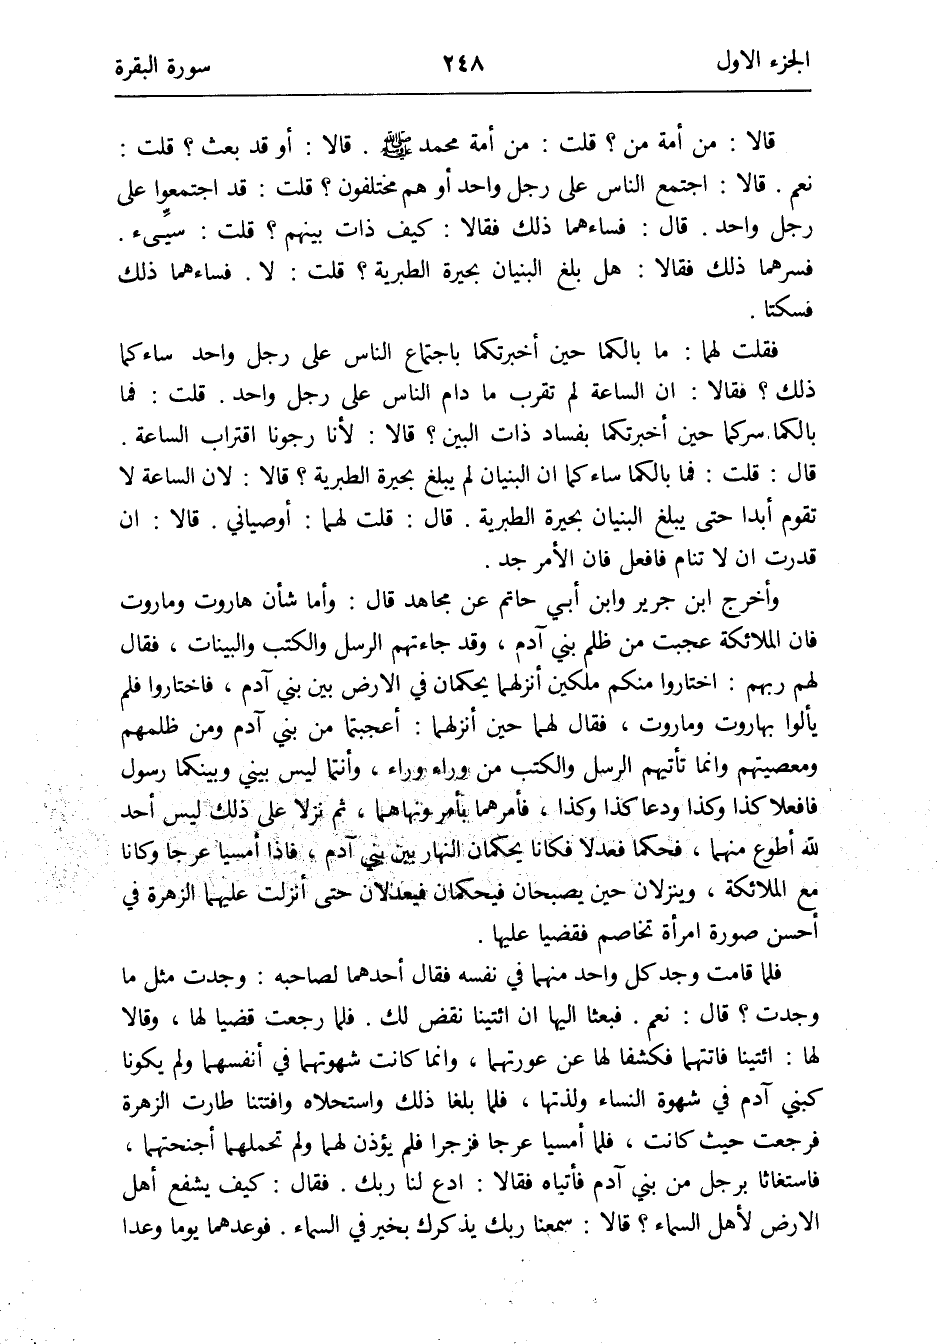 الجزء الاول ٢٤٨ سورة البقرة
قالا : من أمة من ؟ قلت : من أمة محمد ﷺ . قالا : أو قد بعث ؟ قلت :
نعم . قالا : اجتمع الناس على رجل واحد أو هم مختلفون ؟ قلت : قد اجتمعوا على
رجل واحد . قال : فساءهما ذلك فقالا : كيف ذات بينهم ؟ قلت : سيىء .
فسرهما ذلك فقالا : هل بلغ البنيان بحيرة الطبرية ؟ قلت : لا . فساءهما ذلك
فسكتا .
فقلت لهما : ما بالكما حين أخبرتكما باجتماع الناس على رجل واحد ساءكما
ذلك ؟ فقالا : ان الساعة لم تقرب ما دام الناس على رجل واحد . قلت : فما
بالكما سركما حين أخبرتكما بفساد ذات البين ؟ قالا : لأنا رجونا اقتراب الساعة .
قال : قلت : فما بالكما ساءكما ان البنيان لم يبلغ بحيرة الطبرية ؟ قالا : لان الساعة لا
تقوم أبدا حتى يبلغ البنيان بحيرة الطبرية . قال : قلت لهما : أوصياني . قالا : ان
قدرت ان لا تنام فافعل فان الأمر جد .
وأخرج ابن جرير وابن أبي حاتم عن مجاهد قال : وأما شأن هاروت وماروت
فان الملائكة عجبت من ظلم بني آدم ، وقد جاءتهم الرسل والكتب والبينات ، فقال
لهم ربهم : اختاروا منكم ملكين أنزلهما يحكمان في الارض بين بني آدم ، فاختاروا فلم
يألوا بهاروت وماروت ، فقال لهما حين أنزلهما : أعجبتما من بني آدم ومن ظلمهم
ومعصيتهم وانما تأتيهم الرسل والكتب من وراء وراء ، وأنتما ليس بيني وبينكما رسول
فافعلا كذا وكذا ودعا كذا وكذا ، فأمرهما بأمر ونهاهما ، ثم نزلا على ذلك ليس أحد
لله أطوع منهما ، فحكما فعدلا فكانا يحكمان النهار بين بني آدم ، فاذا أمسيا عرجا وكانا
مع الملائكة ، وينزلان حين يصبحان فيحكمان فيعدلان حتى أنزلت عليهما الزهرة في
أحسن صورة امرأة تخاصم فقضيا عليها .
فلما قامت وجد كل واحد منهما في نفسه فقال أحدهما لصاحبه : وجدت مثل ما
وجدت ؟ قال : نعم . فبعثا اليها ان ائتينا نقض لك . فلما رجعت قضيا لها ، وقالا
لها : ائتينا فاتتهما فكشفا لها عن عورتهما ، وانما كانت شهوتهما في أنفسهما ولم يكونا
كبني آدم في شهوة النساء ولذتها ، فلما بلغا ذلك واستحلاه وافتتنا طارت الزهرة
فرجعت حيث كانت ، فلما أمسيا عرجا فزجرا فلم يؤذن لهما ولم تحملهما أجنحتهما ،
فاستغاثا برجل من بني آدم فأتياه فقالا : ادع لنا ربك . فقال : كيف يشفع أهل
الارض لأهل السماء ؟ قالا : سمعنا ربك يذكرك بخير في السماء . فوعدهما يوما وعدا